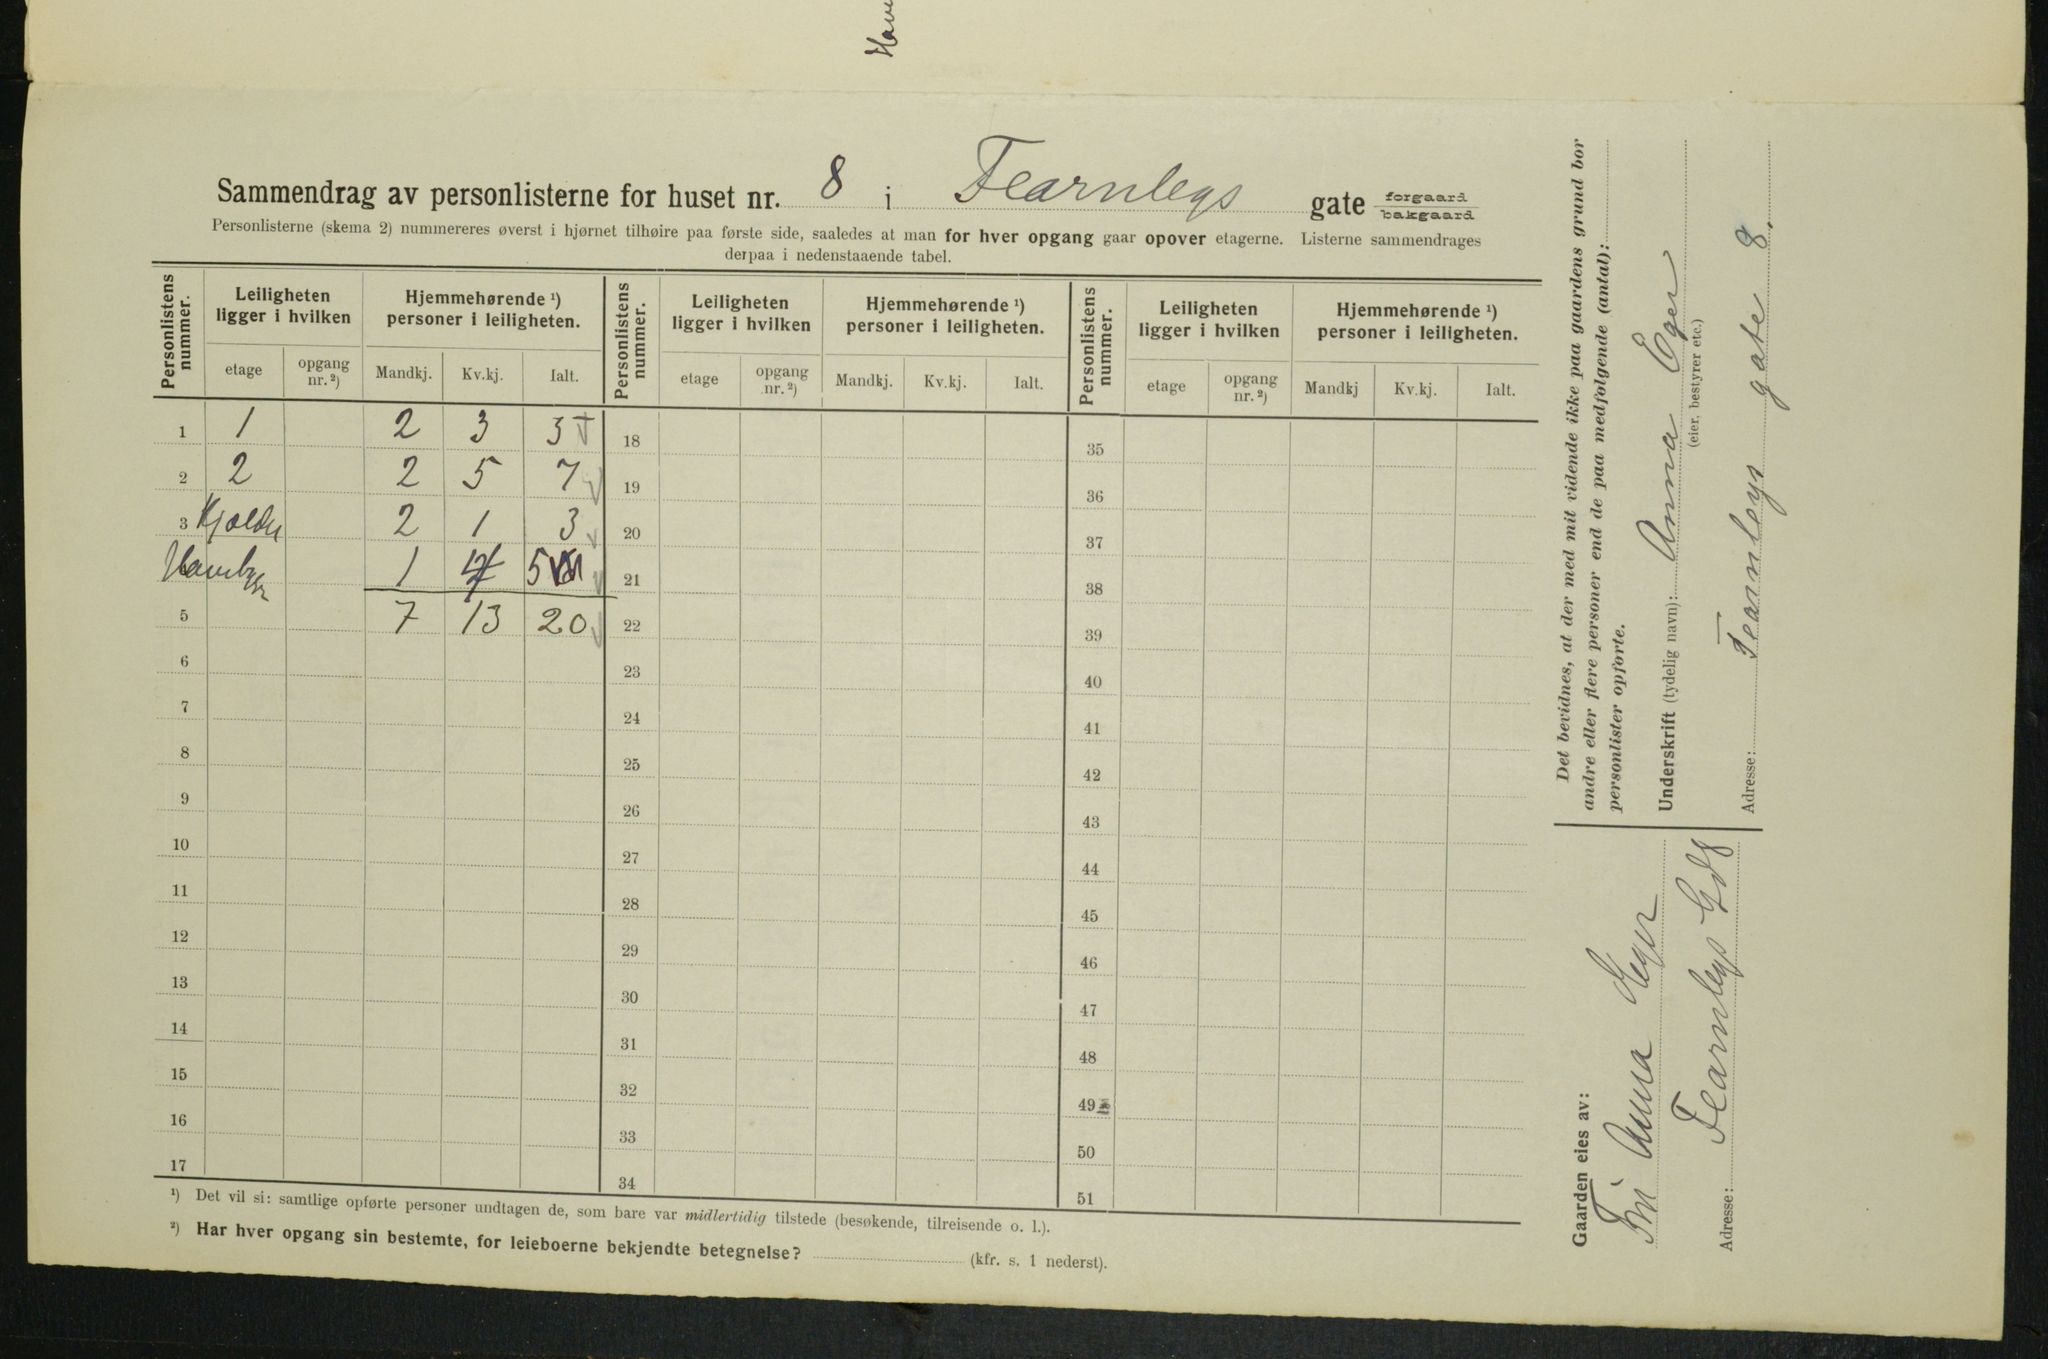 Sammendrag av personlisterne for huset nr. 8 i Fearnleys gate forgaard bakgaard
Personlisterne (skema 2) nummereres øverst i hjørnet tilhøire paa første side, saaledes at man for hver opgang gaar opover etagerne. Listerne sammendrages
derpaa i nedenstaaende tabel.
Personlistens nummer. Leiligheten ligger i hvilken Hjemmehørende ¹) personer i leiligheten. Personlistens nummer. Leiligheten ligger i hvilken Hjemmehørende ¹) personer i leiligheten. Personlistens nummer. Leiligheten ligger i hvilken Hjemmehørende ¹) personer i leiligheten.
etage opgang nr. ²) Mandkj. Kv.kj. Ialt. etage opgang nr. ²) Mandkj. Kv.kj. Ialt. etage opgang nr. ²) Mandkj Kv.kj. Ialt.
1 1 2 3 18 35
2 2 2 5 7 19 36
3 Kjælder 2 1 3 20 37
1 4 5 21 38
5 7 13 20 22 39
6 23 40
7 24 41
8 25 42
9 26 43
10 27 44
11 28 45
12 29 46
13 30 47
14 31 48
15 32 49
16 33 50
17 34 51
¹) Det vil si: samtlige opførte personer undtagen de, som bare var midlertidig tilstede (besøkende, tilreisende o. l.).
²) Har hver opgang sin bestemte, for leieboerne bekjendte betegnelse? (kfr. s. 1 nederst).
Det bevidnes, at der med mit vidende ikke paa gaardens grund bor
andre eller flere personer end de paa medfølgende (antal):
personlister opførte.
Underskrift (tydelig navn): Anna Eger
(eier, bestyrer etc.)
Adresse: Fearnleys gate 8.
Gaarden eies av:
Anna Eger
Adresse: Fearnleys Gd 8